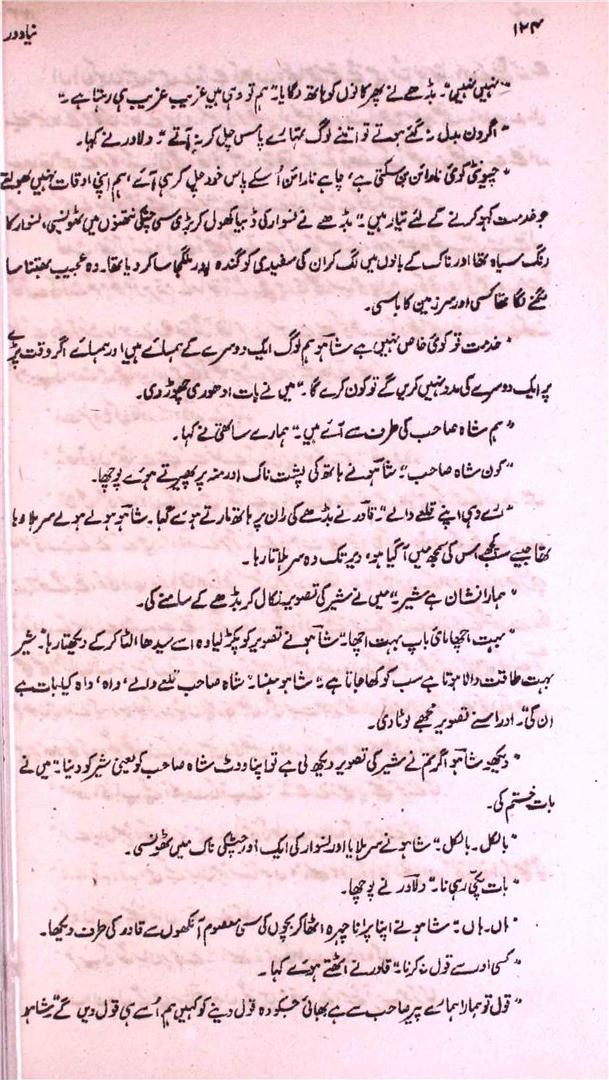 ۱۲۴
نیا دور
"نہیں نہیں"۔ بڈھے نے پھر کانوں کو ہاتھ لگایا۔ "ہم تو وہی میں غریب غریب ہی رہتا ہے۔"
"اگر دن بدل نہ گئے ہوتے تو اتنے لوگ تمہارے پاس چل کر نہ آتے"۔ دلاور نے کہا۔
"چیونٹی کوئی نارائن بن سکتی ہے، چاہے نارائن اُسکے پاس خود چل کر ہی آئے، ہم اپنی اوقات نہیں بھولتے
جو خدمت کہو کرنے کے لئے تیار ہیں۔" بڈھے نے نسوار کی ڈبیا کھول کر بڑی سی چٹکی نتھنوں میں ٹھونسی، نسوار کا
رنگ سیاہ تھا اور ناک کے بالوں میں لگ کر ان کی سفیدی کو گندہ اور ملگجا سا کر دیا تھا۔ وہ عجیب بھتنا سا
لگنے لگا تھا کسی اور سرزمین کا باسی۔
"خدمت تو کوئی خاص نہیں ہے شاہو ہم لوگ ایک دوسرے کے ہمسائے ہیں اور ہمسائے اگر وقت پڑے
پر ایک دوسرے کی مدد نہیں کریں گے تو کون کرے گا۔" میں نے بات ادھوری چھوڑ دی۔
"ہم شاہ صاحب کی طرف سے آئے ہیں۔" ہمارے ساتھی نے کہا۔
"کون شاہ صاحب"۔ شاہو نے ہاتھ کی پشت ناک اور منہ پر پھیرتے ہوئے پوچھا۔
"لے وہی اپنے قلعے والے"۔ قادر نے بڈھے کی ران پر ہاتھ مارتے ہوئے کہا۔ شاہو ہولے ہولے سر ہلا رہا
تھا جیسے سب کچھ اس کی سمجھ میں آ گیا ہو، دیر تک وہ سر ہلاتا رہا۔
"ہمارا نشان ہے شیر۔" میں نے شیر کی تصویر نکال کر بڈھے کے سامنے کی۔
"بہت اچھا مائی باپ بہت اچھا۔" شاہو نے تصویر کو پکڑ لیا وہ اسے سیدھا، الٹا کر کے دیکھتا رہا۔ "شیر
بہت طاقت والا ہوتا ہے سب کو کھا جاتا ہے"۔ شاہو ہنسا۔ "شاہ صاحب قلعے والے، واہ، واہ کیا بات ہے
ان کی"۔ اور اسنے تصویر مجھے لوٹا دی۔
"دیکھو شاہو اگر تم نے شیر کی تصویر دیکھ لی ہے تو اپنا ووٹ شاہ صاحب کو یعنی شیر کو دینا۔" میں نے
بات ختم کی۔
"بالکل۔ بالکل۔" شاہو نے سر ہلایا اور نسوار کی ایک اور چٹکی ناک میں ٹھونسی۔
"بات پکی رہی نا۔" دلاور نے پوچھا۔
"ہاں۔ ہاں۔" شاہو نے اپنا پرانا چہرہ اٹھا کر بچوں کی سی معصوم آنکھوں سے قادر کی طرف دیکھا۔
"کسی اور سے قول نہ کرنا۔" قادر نے اٹھتے ہوئے کہا۔
"قول تو ہمارا ہمارے پیر صاحب سے ہے بھائی جسکو وہ قول دینے کو کہیں ہم اُسے ہی قول دیں گے" شاہو